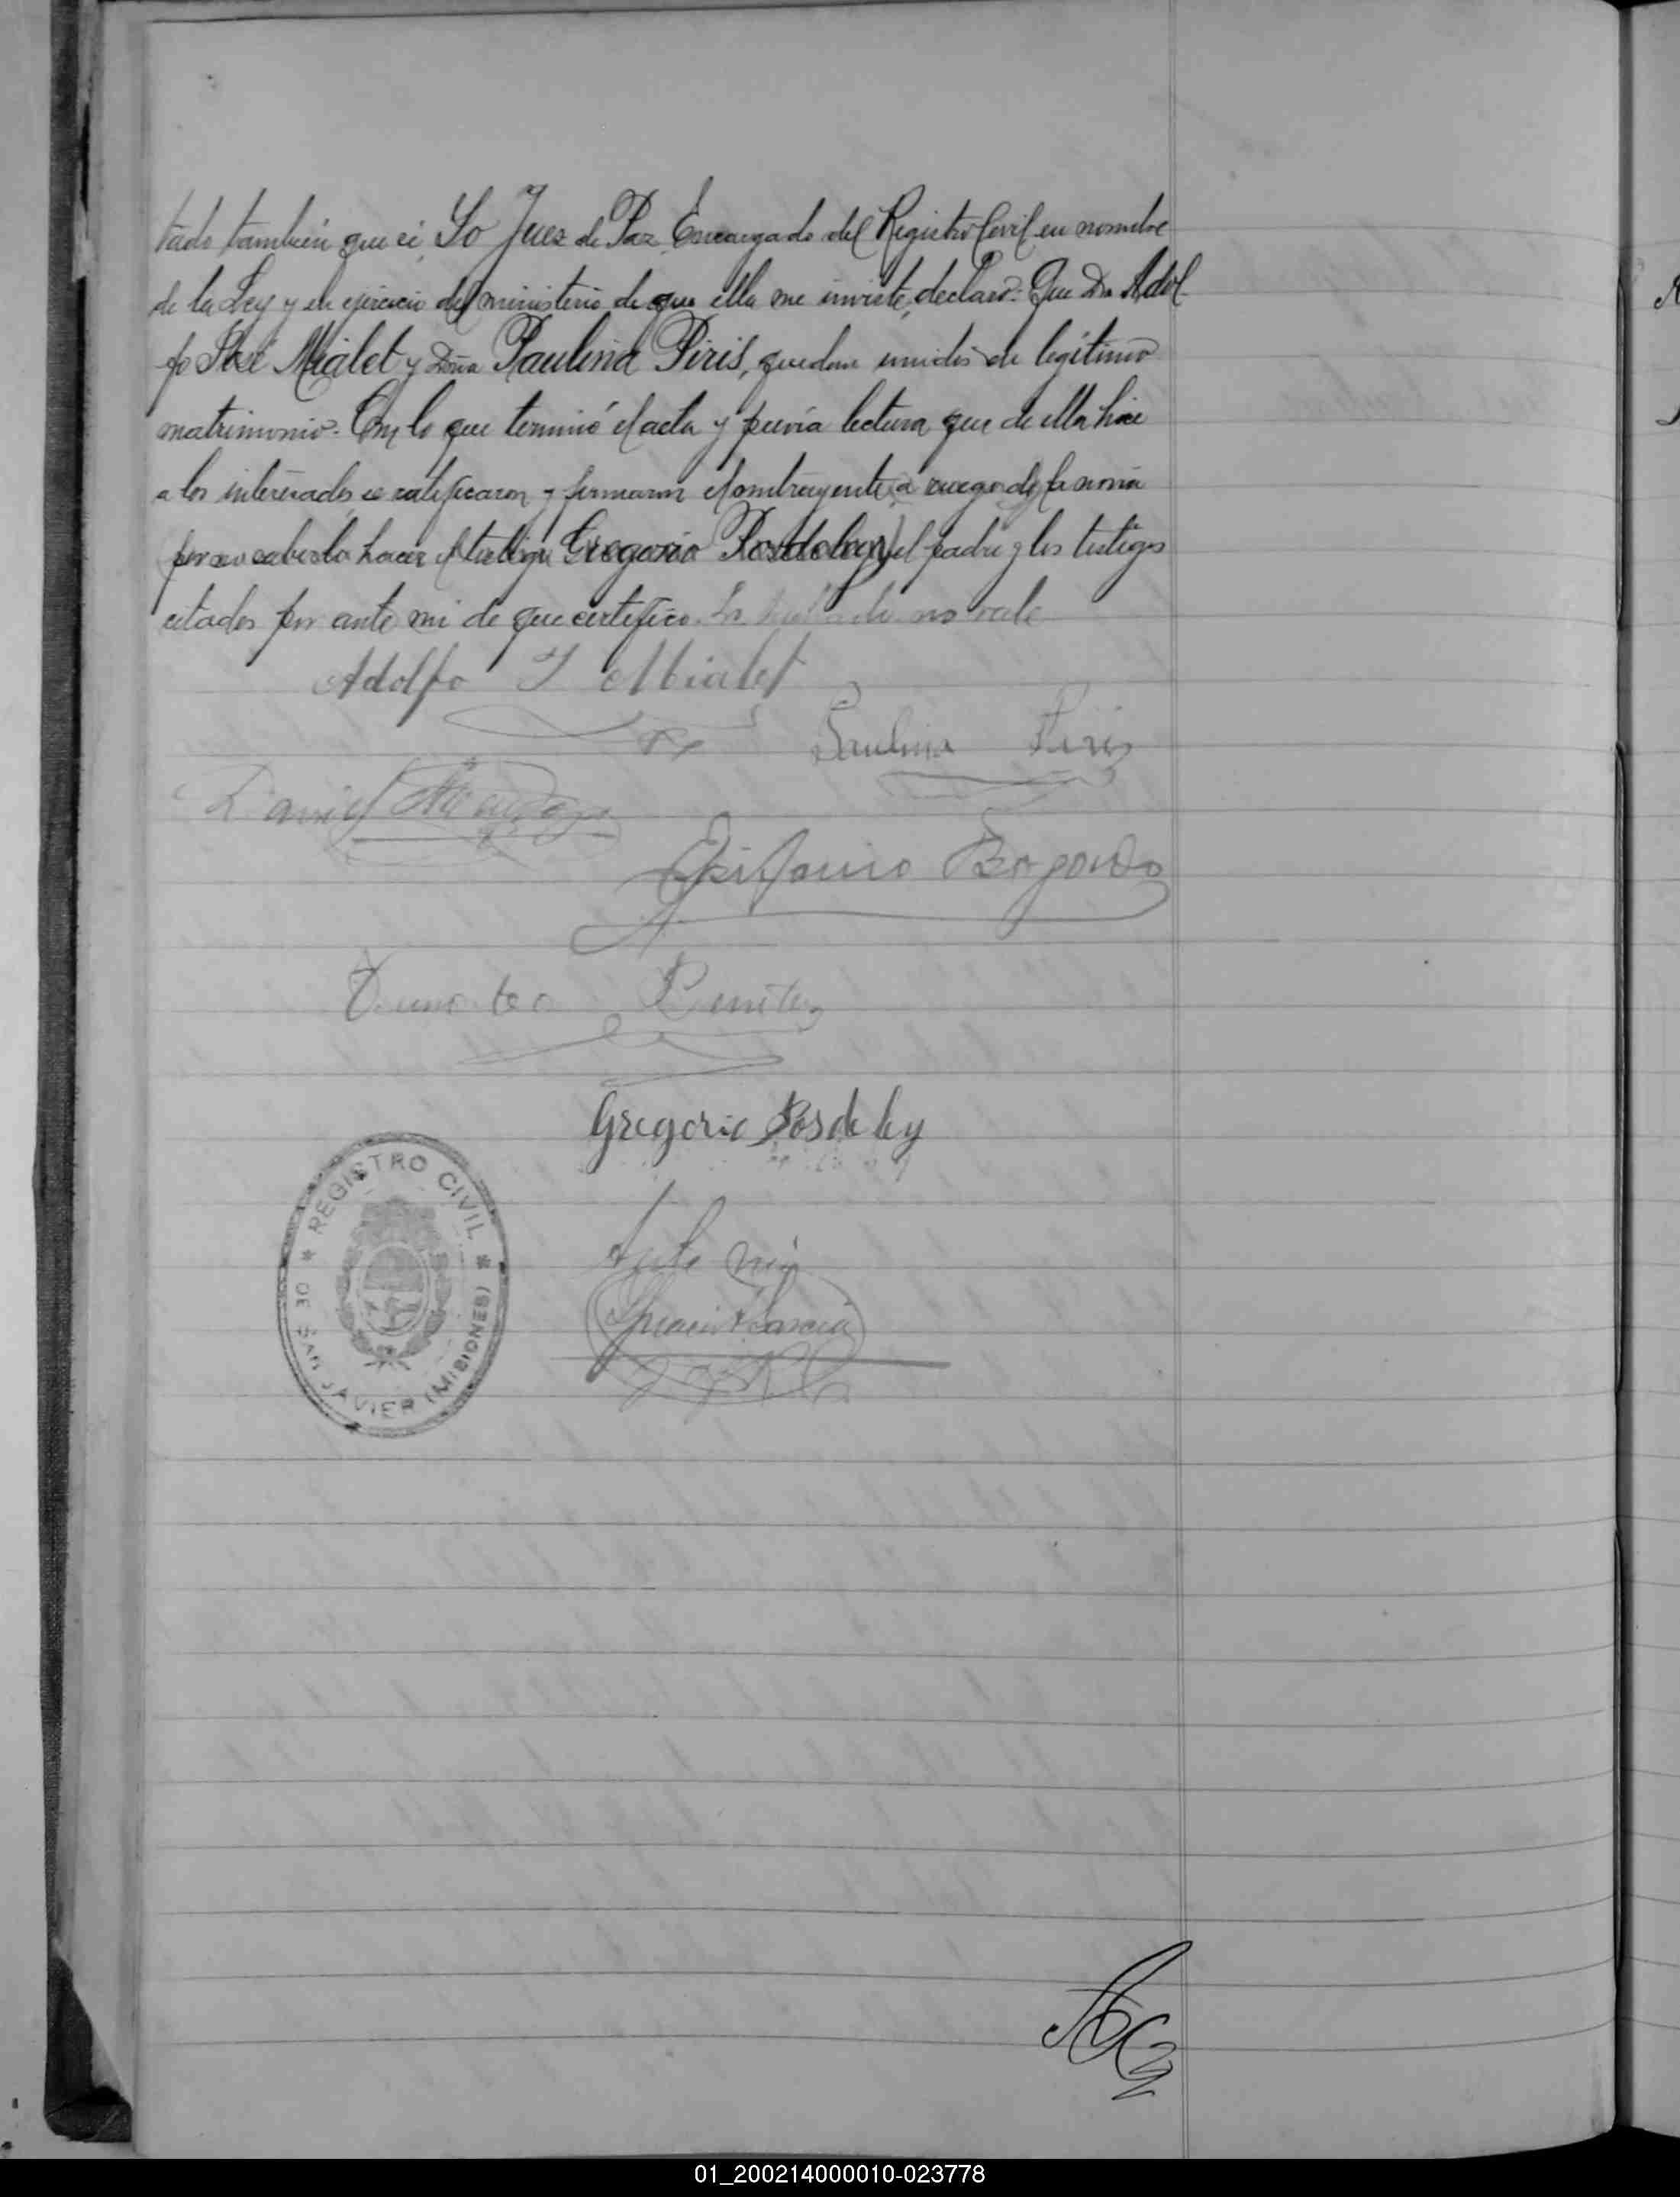 tado también que si, Yo Juez de Paz Encargado del Registro Civil en nombre
de la Ley y en ejercicio del ministerio de que ella me inviste, declaro: Que Dn Adol-
fo José Mialet y Doña Paulina Piris, quedan unidos en legítimo
matrimonio. Con lo que terminó el acta y previa lectura que de ella hice
a los interesados se ratificaron y firmaron el contrayente, a ruego de la novia
por no saberlo hacer el testigo Gregorio Posdeley, el padre y los testigos
citados por ante mi de que certifico. Lo no vale
Adolfo J Mialet
Paulina Piris
Daniel
Epifanio
Timoteo Benitez
Gregorio Posdeley
Ante mi
Garcia
REGISTRO CIVIL
30 SAN JAVIER (MISIONES)
01_200214000010-023778